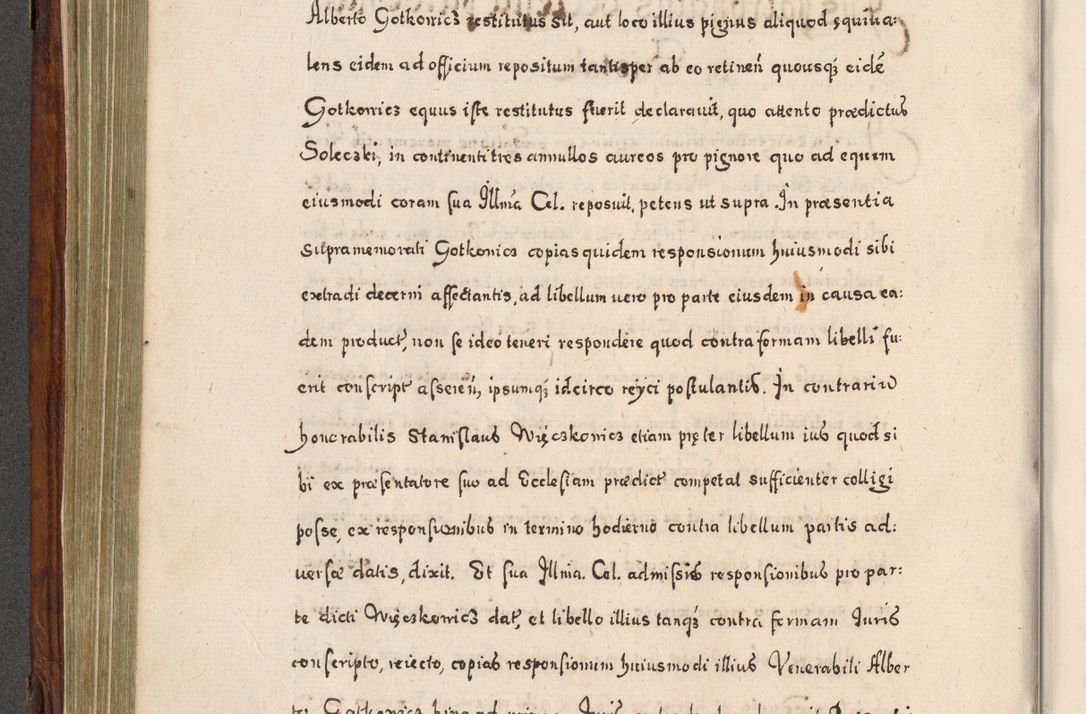 Alberto Gotkowicz restitutus sit, aut loco illius pignus aliquod equiua:
lens eidem ad officium repositum tantisper ab eo retineri quousq₃ eidē
Gotkowicz equus iste restitutus fuerit declarauit, quo attento prædictus
Soleczki, in continenti tres annullos aureos pro pignore quo ad equum
eiusmodi coram sua Illma Cel. reposuit, petens ut supra. In præsentia
supramemorati Gotkowicz copias quidem responsionum huiusmodi sibi
extradi decerni affectantis, ad libellum uero pro parte eiusdem in causa ea:
dem product, non se ideo teneri respondere quod contra formam libelli fu:
erit conscript asseren, ipsumq₃ idcirco reyci postulantis. In contrario
honorabilis Stanislaus Więczkowicz etiam pręter libellum ius quod si
bi ex præsentatore suo ad Ecclesiam prædict competat sufficienter colligi
posse, ex responsionibus in termino hodierno contra libellum partis ad:
uersæ datis, dixit. Et sua Illma. Cel. admissis responsionibus pro par:
te dicti Więczkowicz dat, et libello illius tanq₃ contra formam Iuris
conscripto, reiecto, copias responsionum huiusmodi illius Venerabili Alber
ti Gotkowicz